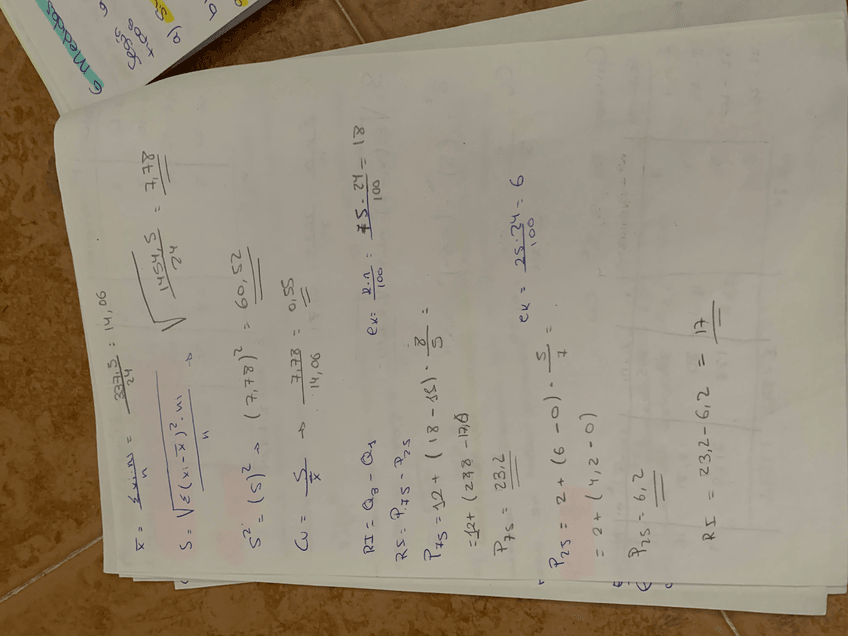 6 Medidas
x̄ = Σxi·ni / n = 337,5 / 24 = 14,06
S = √(Σ(xi-x̄)²·ni / n) → √(1454,5 / 24) = 7,78
S² = (S)² → (7,78)² = 60,52
CV = S / x̄ → 7,78 / 14,06 = 0,55
RI = Q3 - Q1 ek = k·n / 100 = 75·24 / 100 = 18
RI = P75 - P25
P75 = 12 + (18-15) · 8 / 5 =
= 12 + (28,8 -
P75 = 23,2
P25 = 2 + (6-0) · 5 / 7 = ek = 25·24 / 100 = 6
= 2 + (4,2-0)
P25 = 6,2
RI = 23,2 - 6,2 = 17